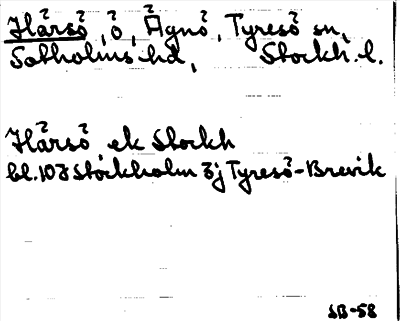 Härsö, ö, Ägnö, Tyresö sn,
Sotholms hd, Stockh. l.
Härsö, ek Stockh
bl. 10J Stockholm 3j Tyresö-Brevik
SB-58